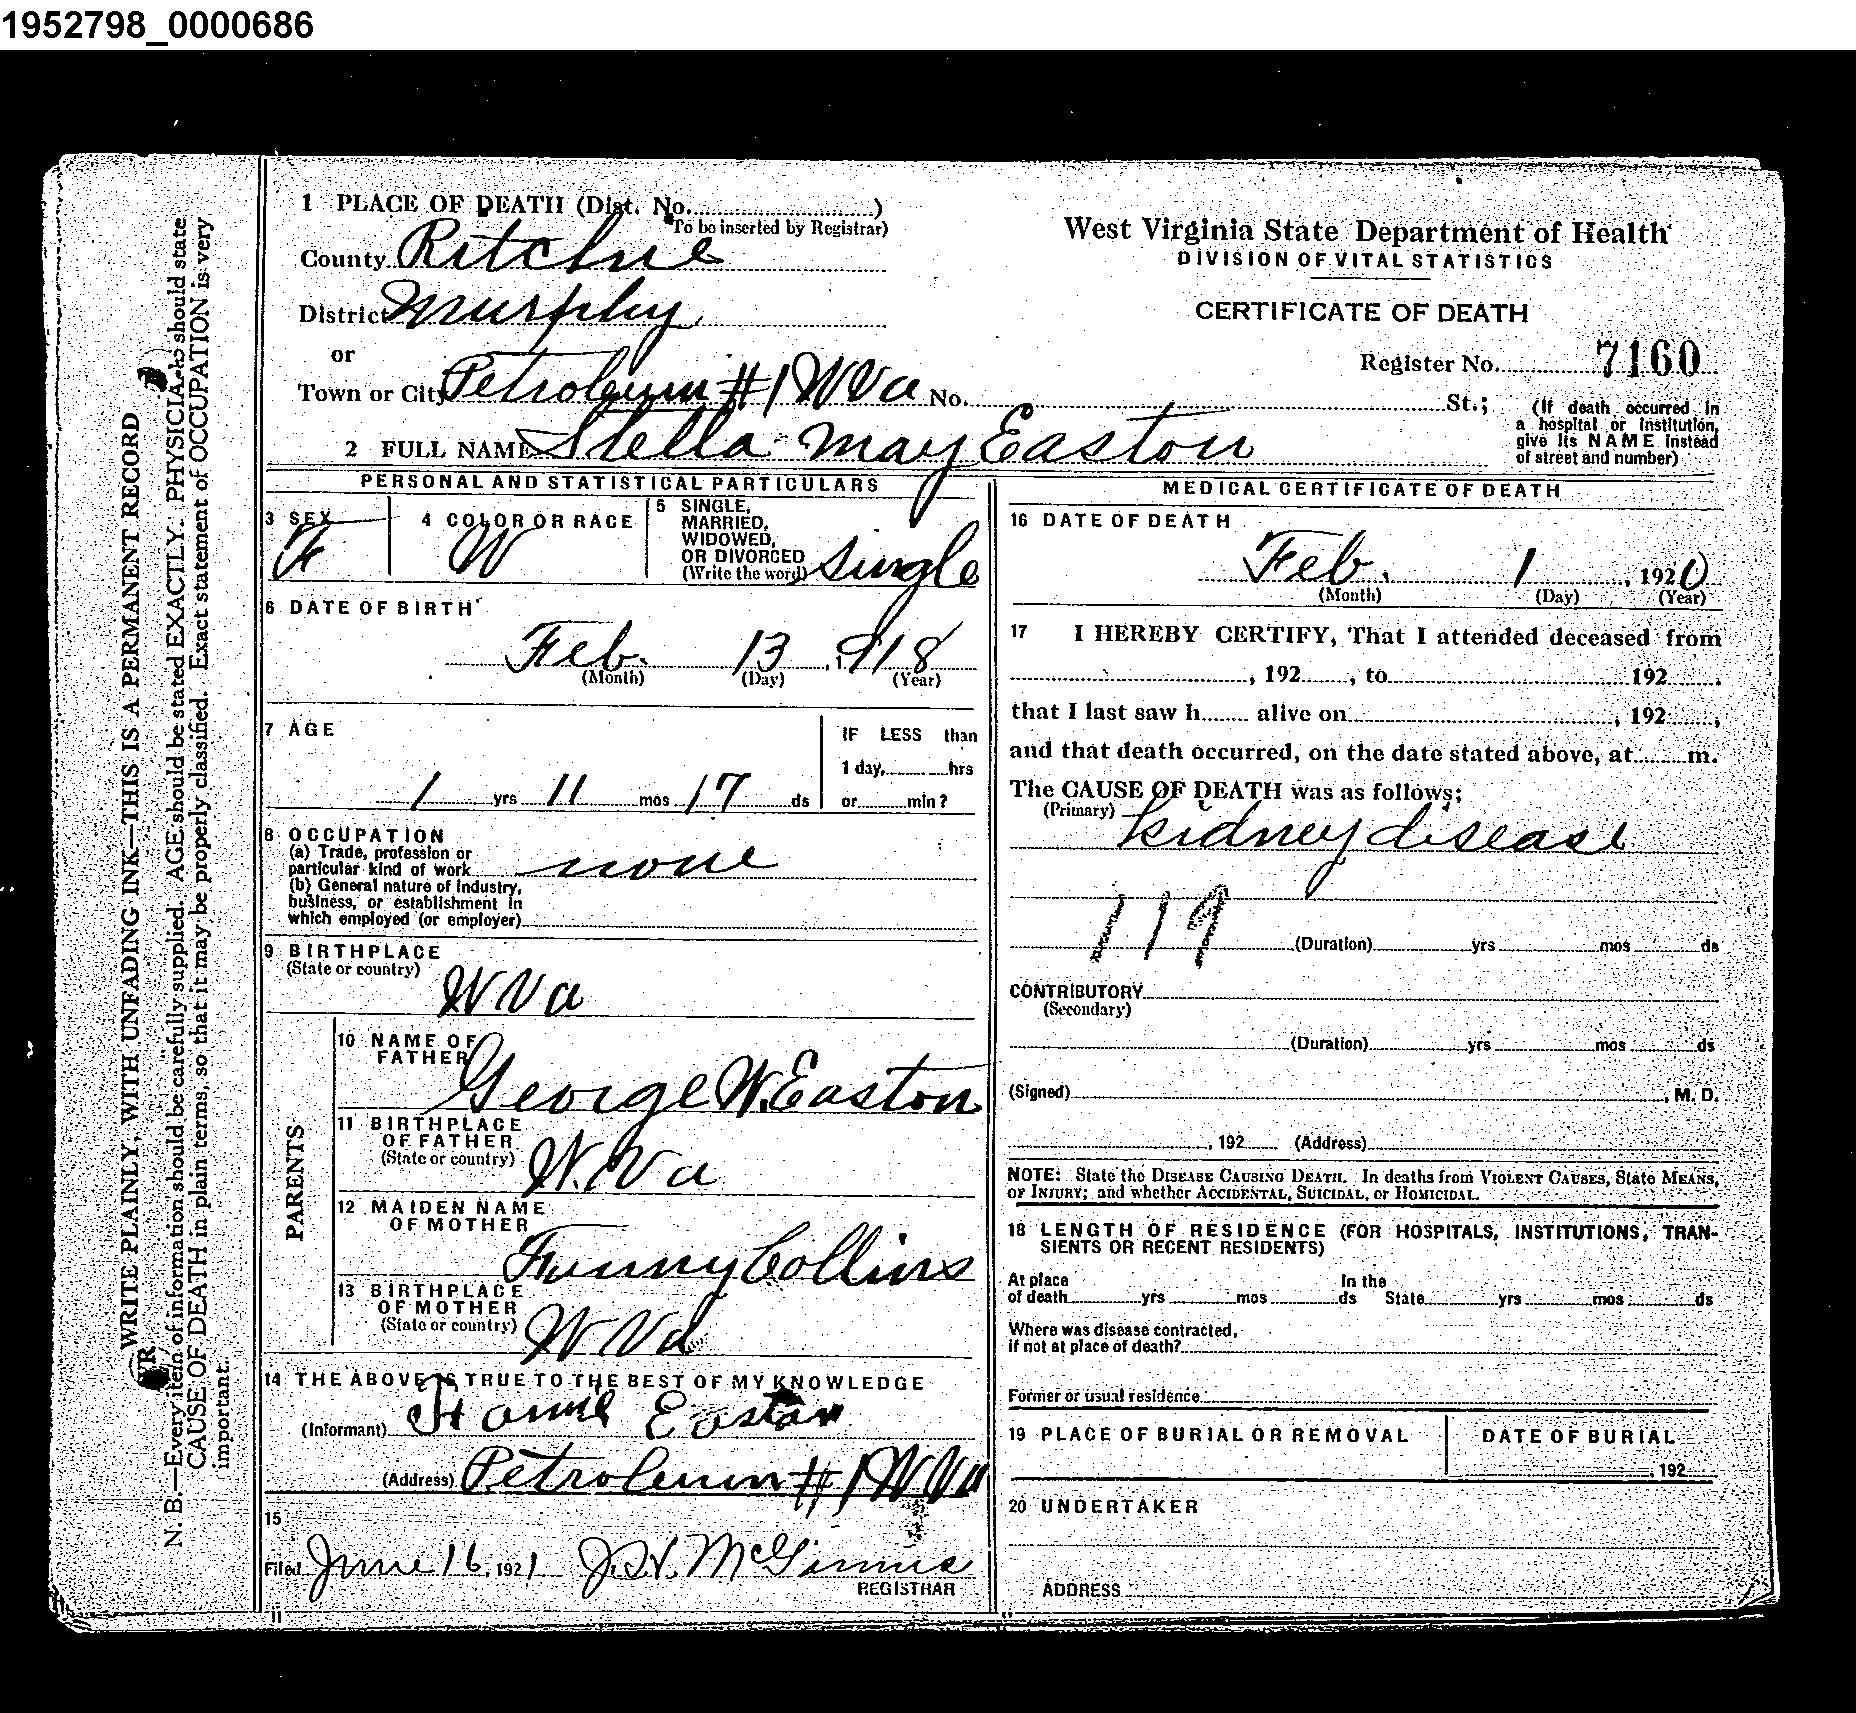 1952798_0000686
WRITE PLAINLY, WITH UNFADING INK—THIS IS A PERMANENT RECORD
N. B.—Every item of information should be carefully supplied. AGE should be stated EXACTLY. PHYSICIANS should state
CAUSE OF DEATH in plain terms, so that it may be properly classified. Exact statement of OCCUPATION is very
important.
1 PLACE OF DEATH (Dist. No. )
To be inserted by Registrar)
County Ritchie
District Murphy
or
Town or City Petroleum #1 W Va No. St.;
West Virginia State Department of Health
DIVISION OF VITAL STATISTICS
CERTIFICATE OF DEATH
Register No. 7160
(If death occurred in
a hospital or institution,
give its NAME instead
of street and number)
2 FULL NAME Stella May Easton
PERSONAL AND STATISTICAL PARTICULARS
3 SEX
F
4 COLOR OR RACE
W
5 SINGLE,
MARRIED,
WIDOWED,
OR DIVORCED
(Write the word) Single
6 DATE OF BIRTH
Feb. 13, 1918
(Month) (Day) (Year)
7 AGE
1 yrs 11 mos 17 ds
IF LESS than
1 day, hrs
or min?
8 OCCUPATION
(a) Trade, profession or
particular kind of work none
(b) General nature of Industry,
business, or establishment in
which employed (or employer)
9 BIRTHPLACE
(State or country)
W Va
PARENTS
10 NAME OF
FATHER George W. Easton
11 BIRTHPLACE
OF FATHER
(State or country) W. Va
12 MAIDEN NAME
OF MOTHER
Fanny Collins
13 BIRTHPLACE
OF MOTHER
(State or country) W Va
14 THE ABOVE IS TRUE TO THE BEST OF MY KNOWLEDGE
(Informant) Easton
(Address) Petroleum #1 W Va
15
Filed June 16, 1921 J. H. McGinnis
REGISTRAR
MEDICAL CERTIFICATE OF DEATH
16 DATE OF DEATH
Feb. 1, 1920
(Month) (Day) (Year)
17 I HEREBY CERTIFY, That I attended deceased from
, 192 , to 192 .
that I last saw h alive on , 192 ,
and that death occurred, on the date stated above, at m.
The CAUSE OF DEATH was as follows:
(Primary) kidney disease
119
(Duration) yrs mos ds
CONTRIBUTORY
(Secondary)
(Duration) yrs mos ds
(Signed) , M. D.
, 192 (Address)
NOTE: State the DISEASE CAUSING DEATH. In deaths from VIOLENT CAUSES, State MEANS,
OF INJURY; and whether ACCIDENTAL, SUICIDAL, or HOMICIDAL.
18 LENGTH OF RESIDENCE (FOR HOSPITALS, INSTITUTIONS, TRAN-
SIENTS OR RECENT RESIDENTS)
At place
of death yrs mos ds
In the
State yrs mos ds
Where was disease contracted,
if not at place of death?
Former or usual residence
19 PLACE OF BURIAL OR REMOVAL
DATE OF BURIAL
, 192
20 UNDERTAKER
ADDRESS